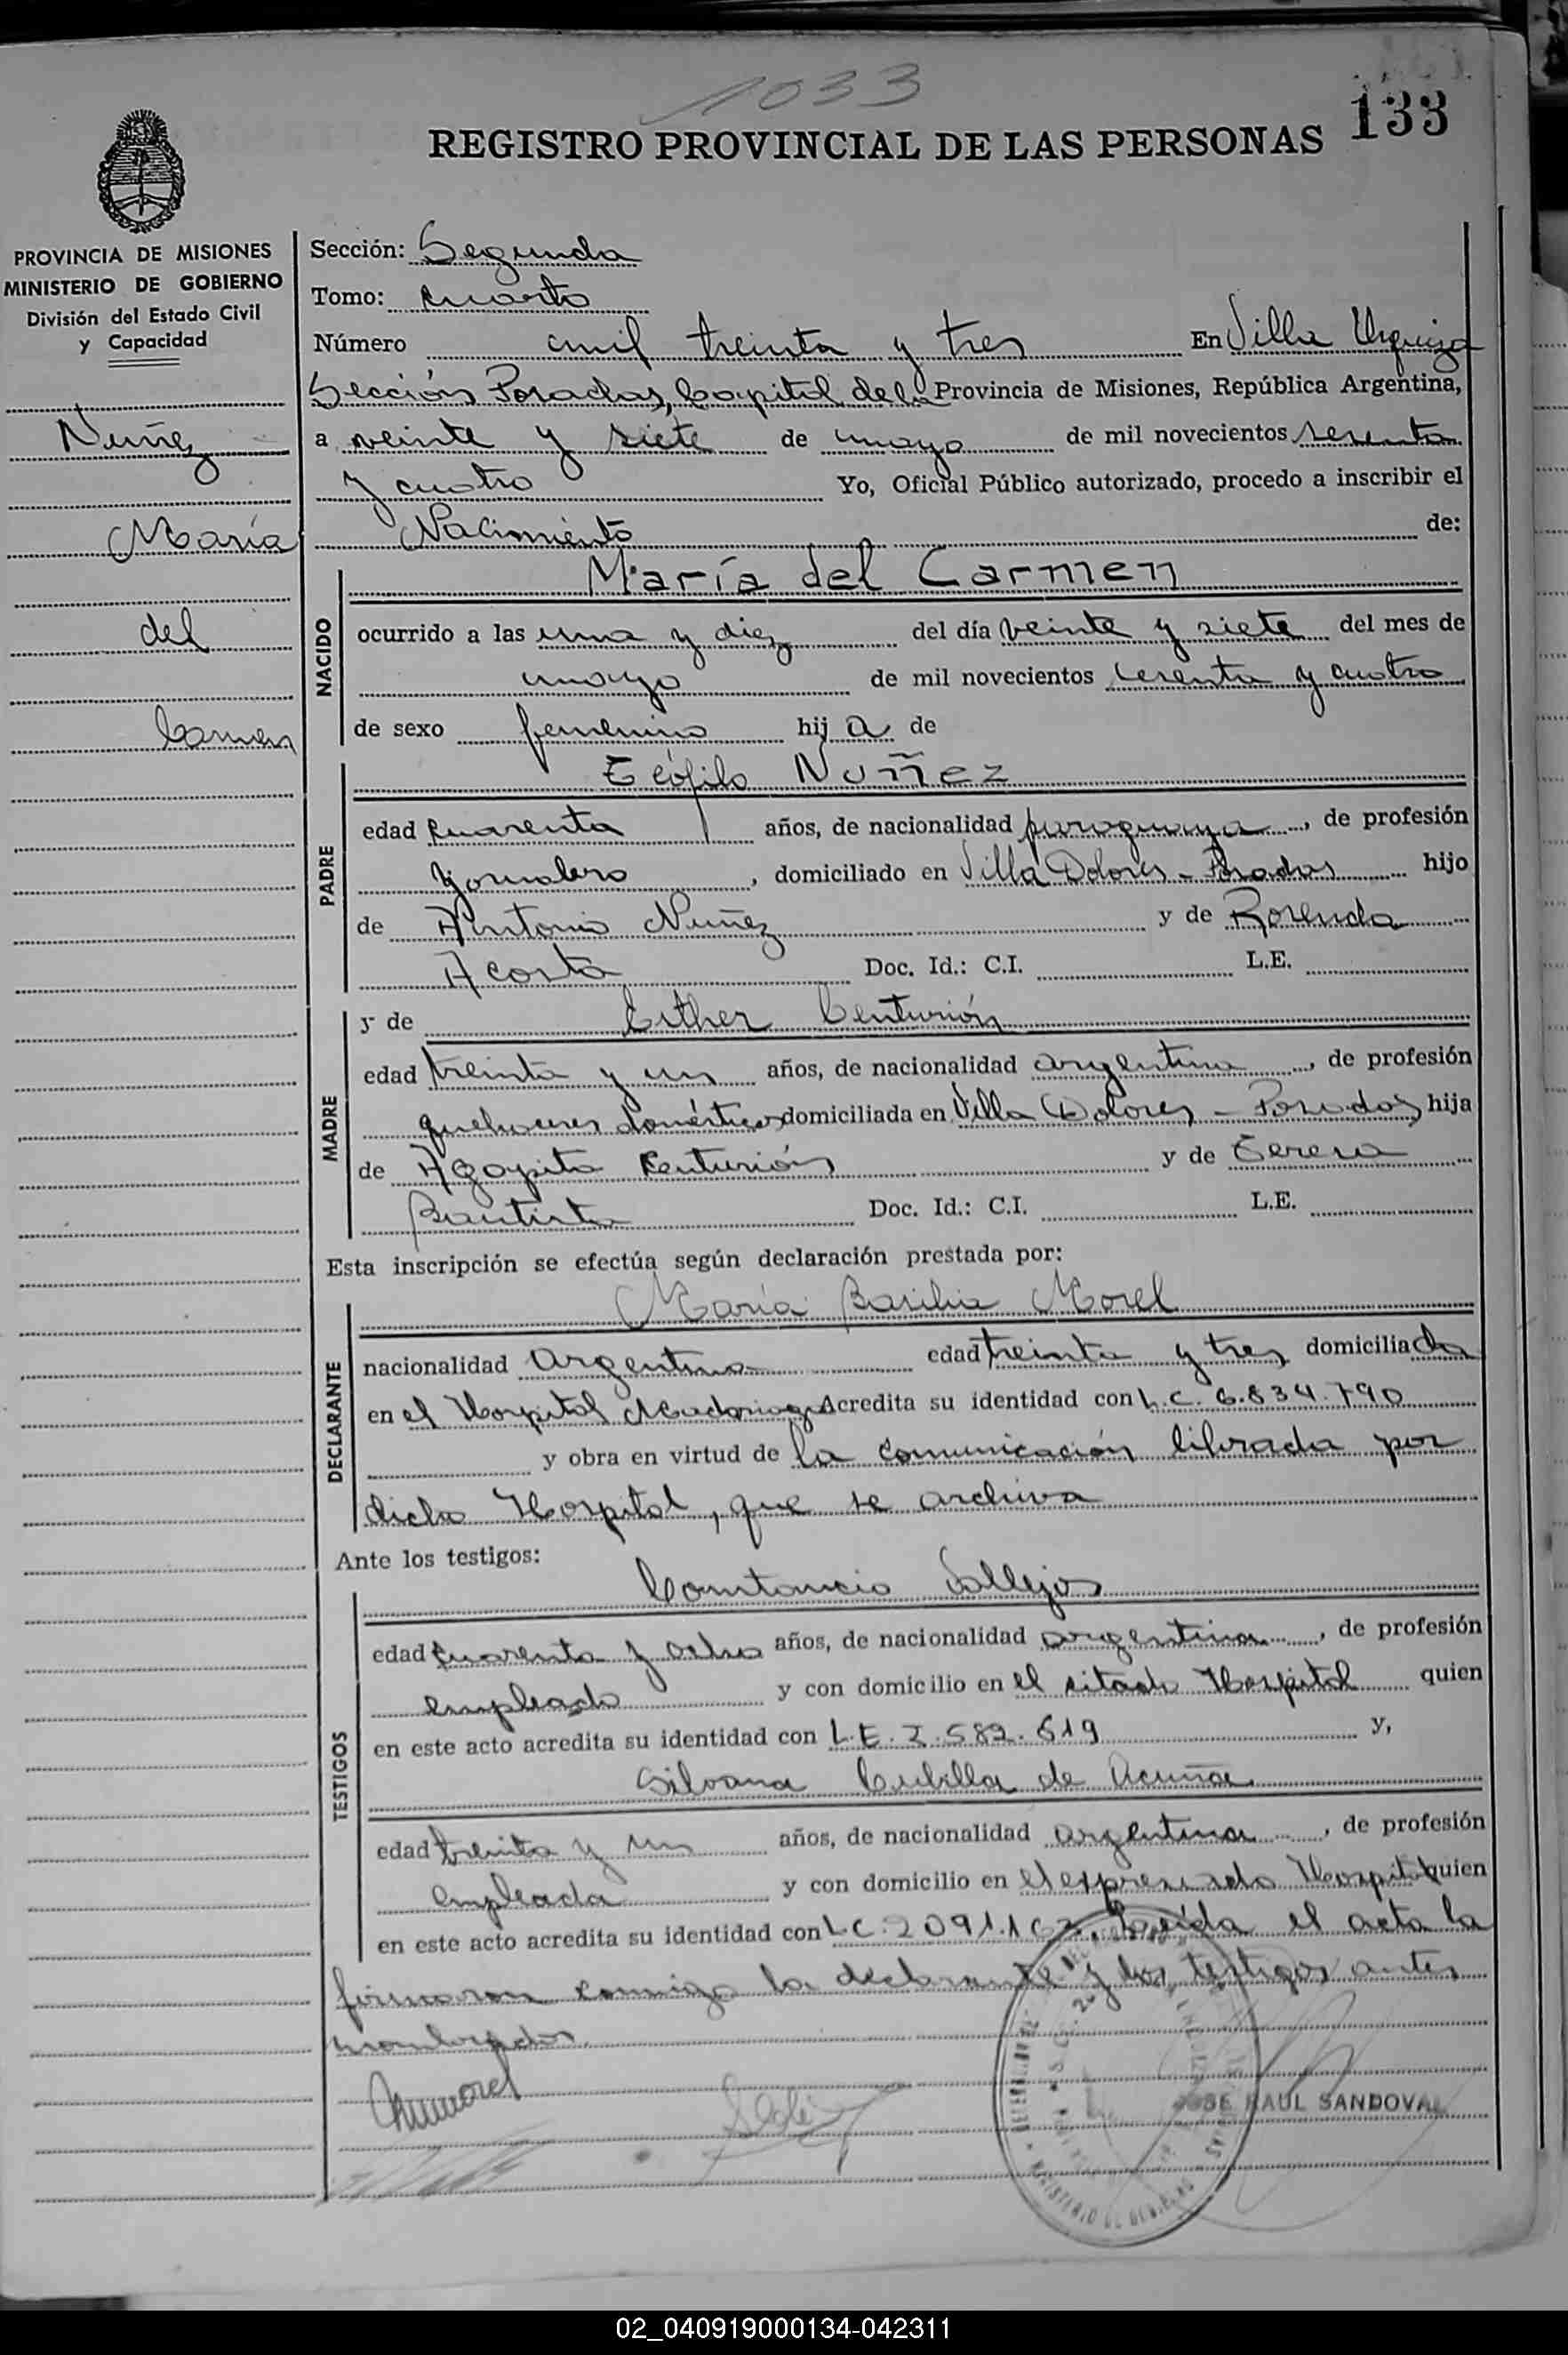 1033
133
REGISTRO PROVINCIAL DE LAS PERSONAS
PROVINCIA DE MISIONES
MINISTERIO DE GOBIERNO
División del Estado Civil
y Capacidad
Nuñez
María
del
Carmen
Sección: Segunda
Tomo: cuarto
Número mil treinta y tres En Villa Urquiza
Sección Posadas, Capital de la Provincia de Misiones, República Argentina,
a veinte y siete de mayo de mil novecientos sesenta
y cuatro Yo, Oficial Público autorizado, procedo a inscribir el
Nacimiento de:
NACIDO
María del Carmen
ocurrido a las una y diez del día veinte y siete del mes de
mayo de mil novecientos sesenta y cuatro
de sexo femenino hija de
PADRE
Teófilo Nuñez
edad cuarenta años, de nacionalidad paraguaya, de profesión
jornalero, domiciliado en Villa Dolores - Posadas hijo
de Antonio Nuñez y de Rosenda
Acosta Doc. Id.: C.I. L.E.
MADRE
y de Esther Centurión
edad treinta y un años, de nacionalidad argentina, de profesión
quehaceres domésticos domiciliada en Villa Dolores - Posadas hija
de Agapito Centurión y de Teresa
Bautista Doc. Id.: C.I. L.E.
Esta inscripción se efectúa según declaración prestada por:
DECLARANTE
María Basilia Morel
nacionalidad argentina edad treinta y tres domiciliada
en el Hospital Madariaga Acredita su identidad con L.C. 6.834.790
y obra en virtud de la comunicación librada por
dicho Hospital, que se archiva
Ante los testigos:
TESTIGOS
Constancio Vallejos
edad cuarenta y ocho años, de nacionalidad argentina, de profesión
empleado y con domicilio en el citado Hospital quien
en este acto acredita su identidad con L.E. 582.619 y,
Silvana Cubilla de Acuña
edad treinta y un años, de nacionalidad argentina, de profesión
empleada y con domicilio en el expresado Hospital quien
en este acto acredita su identidad con L.C. Leída el acta la
firmaron conmigo la declarante y los testigos antes
nombrados.
Mmorel
JOSE RAUL SANDOVAL
02_040919000134-042311